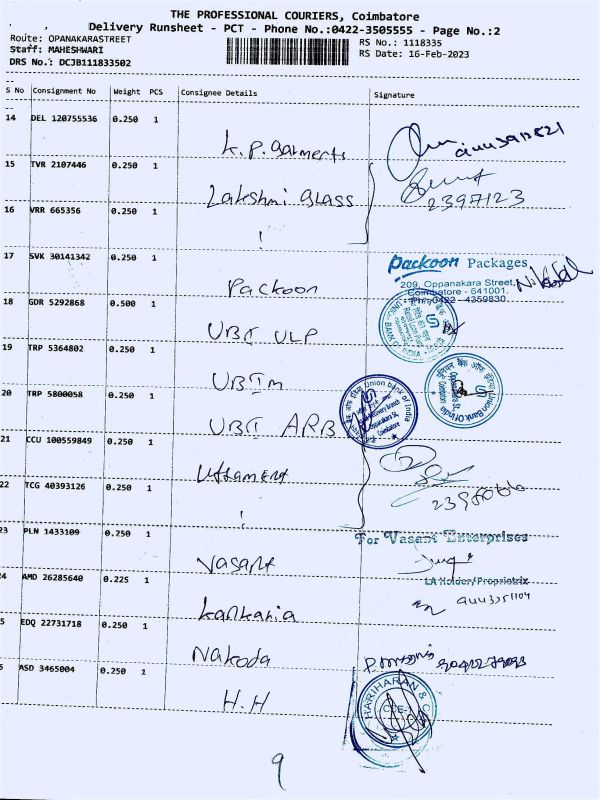 THE PROFESSIONAL COURIERS, Coimbatore
Delivery Runsheet - PCT - Phone No.:0422-3505555 - Page No.:2
Route: OPANAKARASTREET
Staff: MAHESHWARI
DRS No.: DCJB111833502
RS No.: 1118335
RS Date: 16-Feb-2023
S No Consignment No Weight PCS Consignee Details Signature
14 DEL 120755536 0.250 1
K.P. Garments
15 TVR 2107446 0.250 1
Lakshmi Glass
2397123
16 VRR 665356 0.250 1
17 SVK 30141342 0.250 1
Packoon
Packoon Packages
209, Oppanakara Street,
Coimbatore - 641001.
Ph : 0422 - 4359830.
18 GDR 5292868 0.500 1
UBI ULP
19 TRP 5364802 0.250 1
UBIM
20 TRP 5800058 0.250 1
UBI ARB
Union bank of India
Coimbatore
Union Bank Of India
21 CCU 100559849 0.250 1
22 TCG 40393126 0.250 1
23 PLN 1433109 0.250 1
Vasant
For Vasant Enterprises
LA Holder/Proprietrix
24 AMD 26285640 0.225 1
Kankaria
5 EDQ 22731718 0.250 1
Nakoda
6 ASD 3465004 0.250 1
H.H
HARIHARAN & C
9